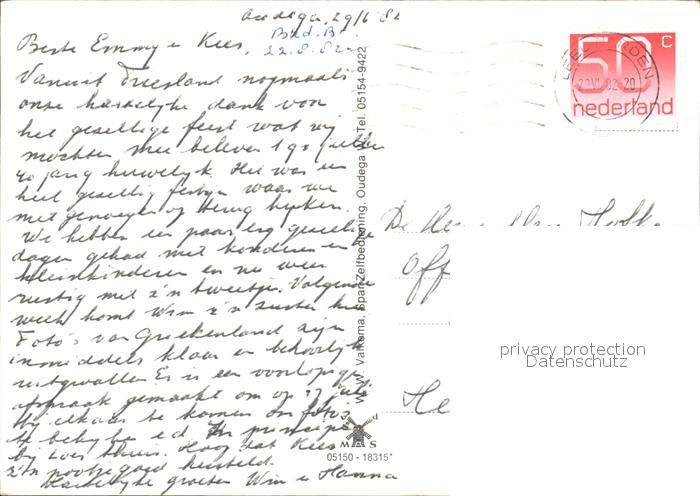 Oudega, 29/6 82
Beste Emmy e Kees,
Bud. Br.
22.8.82
Vanuit Friesland nogmaals
onze hartelijke dank voor
het gezellige feest wat wij
mochten mee beleven
40 jarig huwelijk. Het was een
heel gezellig feestje waar we
met genoegen op terug kijken.
We hebben een paar erg gezellige
dagen gehad met kinderen en
kleinkinderen en nu weer
rustig met z'n tweetjes. Volgende
week komt Wim z'n zuster hier
Foto's van Griekenland zijn
inmiddels klaar en behoorlijk
uitgevallen Er is een voorlopige
afspraak gemaakt om op 17 juli
bij elkaar te komen om foto's
te bekijken e.d. In principe
bij Loes thuis. Hoop dat Kees
z'n pootje goed hersteld.
Hartelijke groeten Wim e Hanna
Valkema, Spar Zelfbediening, Oudega W. Tel. 05154-9422
MAS
05150 - 18315*
LEE RDEN
VI 82 20
50 C
nederland
De Heer
Off
He
privacy protection
Datenschutz